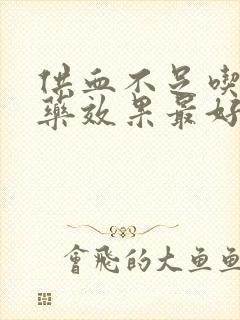 供血不足喫
藥效果最好
會飛的大魚